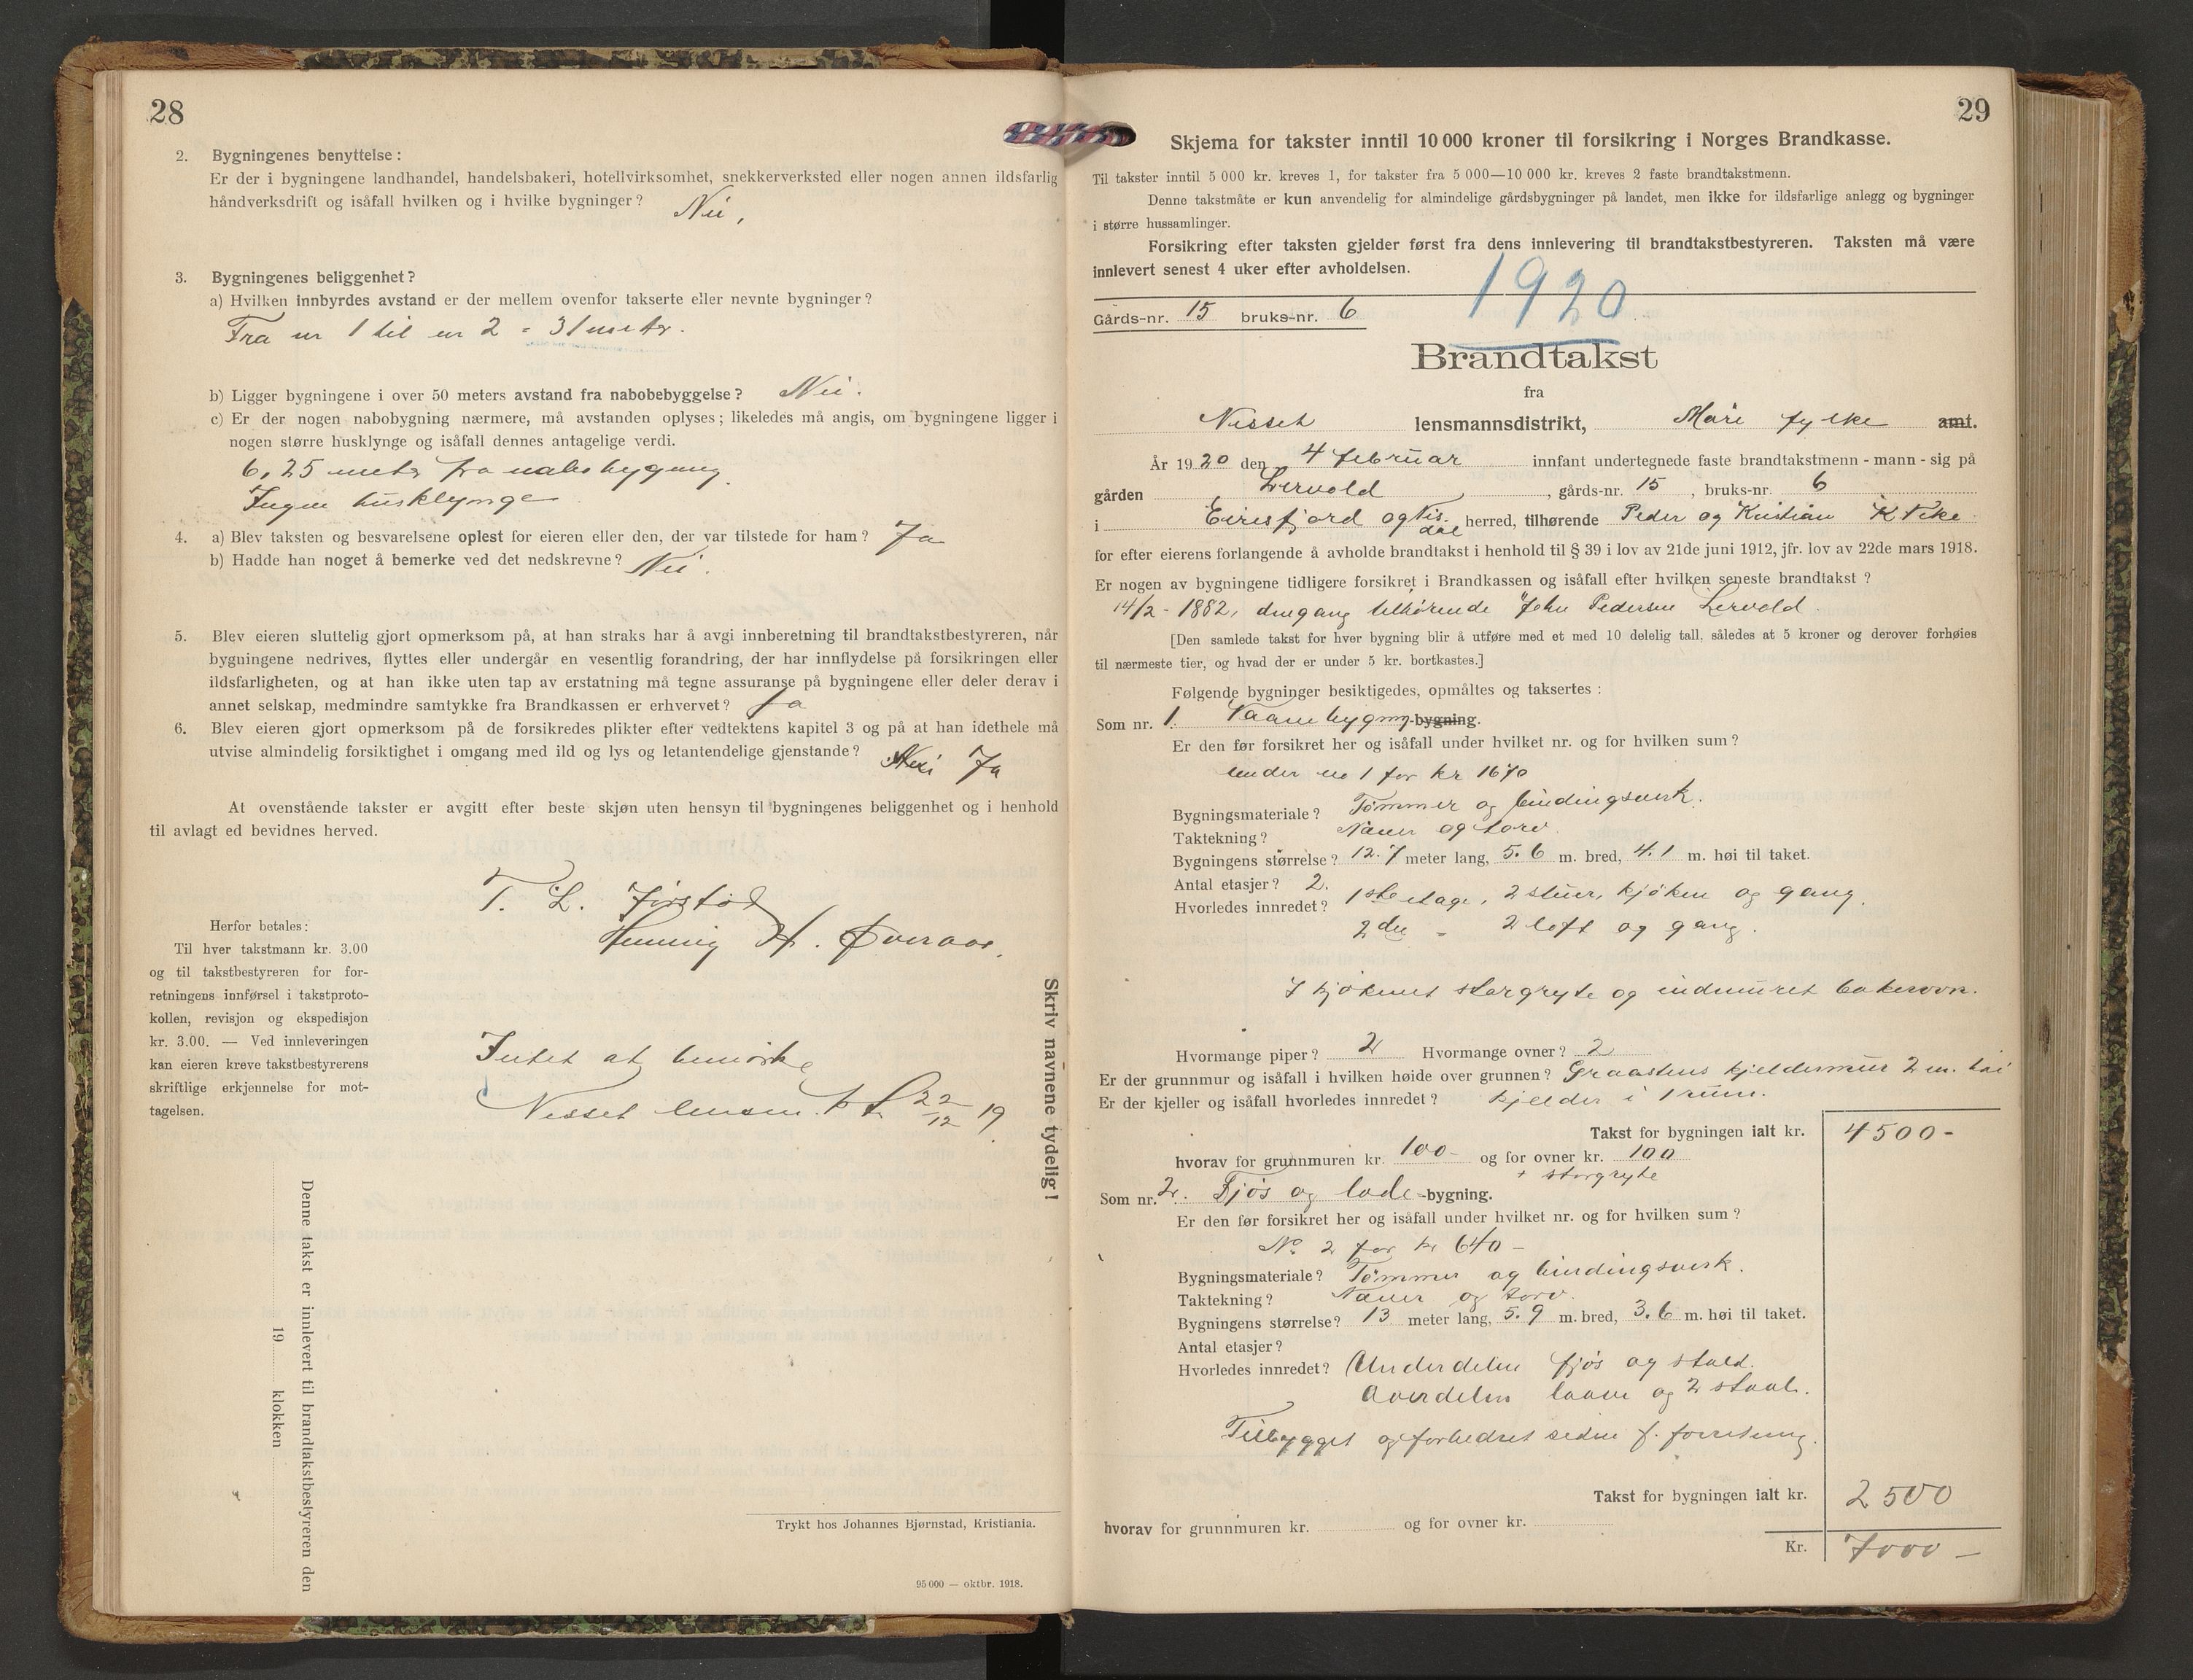 28
2. Bygningenes benyttelse:
Er der i bygningene landhandel, handelsbakeri, hotellvirksomhet, snekkerverksted eller nogen annen ildsfarlig
håndverksdrift og isåfall hvilken og i hvilke bygninger? Nei,
3. Bygningenes beliggenhet?
a) Hvilken innbyrdes avstand er der mellem ovenfor takserte eller nevnte bygninger?
Fra nr 1 til nr 2 = 31 meter.
b) Ligger bygningene i over 50 meters avstand fra nabobebyggelse? Nei.
c) Er der nogen nabobygning nærmere, må avstanden oplyses; likeledes må angis, om bygningene ligger i
nogen større husklynge og isåfall dennes antagelige verdi.
6,25 meter fra nabobygning.
Ingen husklynge
4. a) Blev taksten og besvarelsene oplest for eieren eller den, der var tilstede for ham? Ja
b) Hadde han noget å bemerke ved det nedskrevne? Nei.
5. Blev eieren sluttelig gjort opmerksom på, at han straks har å avgi innberetning til brandtakstbestyreren, når
bygningene nedrives, flyttes eller undergår en vesentlig forandring, der har innflydelse på forsikringen eller
ildsfarligheten, og at han ikke uten tap av erstatning må tegne assuranse på bygningene eller deler derav i
annet selskap, medmindre samtykke fra Brandkassen er erhvervet? Ja
6. Blev eieren gjort opmerksom på de forsikredes plikter efter vedtektens kapitel 3 og på at han idethele må
utvise almindelig forsiktighet i omgang med ild og lys og letantendelige gjenstande? Nei Ja
At ovenstående takster er avgitt efter beste skjøn uten hensyn til bygningenes beliggenhet og i henhold
til avlagt ed bevidnes herved.
T. L.
Henning H. Øveraas.
Herfor betales:
Til hver takstmann kr. 3.00
og til takstbestyreren for for-
retningens innførsel i takstproto-
kollen, revisjon og ekspedisjon
kr. 3.00. — Ved innleveringen
kan eieren kreve takstbestyrerens
skriftlige erkjennelse for mot-
tagelsen.
Intet at bemærke
Nesset lensm. 22/12 19.
Skriv navnene tydelig!
Denne takst er innlevert til brandtakstbestyreren den
19 klokken
Trykt hos Johannes Bjørnstad, Kristiania.
95 000 — oktbr. 1918.
29
Skjema for takster inntil 10 000 kroner til forsikring i Norges Brandkasse.
Til takster inntil 5 000 kr. kreves 1, for takster fra 5 000—10 000 kr. kreves 2 faste brandtakstmenn.
Denne takstmåte er kun anvendelig for almindelige gårdsbygninger på landet, men ikke for ildsfarlige anlegg og bygninger
i større hussamlinger.
Forsikring efter taksten gjelder først fra dens innlevering til brandtakstbestyreren. Taksten må være
innlevert senest 4 uker efter avholdelsen.
1920
Gårds-nr. 15 bruks-nr. 6
Brandtakst
fra
Nesset lensmannsdistrikt, Møre fylke amt.
År 1920 den 4 februar innfant undertegnede faste brandtakstmenn - mann - sig på
gården Lervold, gårds-nr. 15, bruks-nr. 6
i Eiresfjord og Vis-
dal herred, tilhørende Peder og Kristian K
for efter eierens forlangende å avholde brandtakst i henhold til § 39 i lov av 21de juni 1912, jfr. lov av 22de mars 1918.
Er nogen av bygningene tidligere forsikret i Brandkassen og isåfall efter hvilken seneste brandtakst?
14/2 - 1882, dengang tilhørende John Pedersen Lervold.
[Den samlede takst for hver bygning blir å utføre med et med 10 delelig tall, således at 5 kroner og derover forhøies
til nærmeste tier, og hvad der er under 5 kr. bortkastes.]
Følgende bygninger besiktigedes, opmåltes og taksertes:
Som nr. 1. Vaanebygning-bygning.
Er den før forsikret her og isåfall under hvilket nr. og for hvilken sum?
Under no 1 for kr 1670
Bygningsmateriale? Tømmer og bindingsverk.
Taktekning? Næver og torv.
Bygningens størrelse? 12.7 meter lang, 5.6 m. bred, 4.1 m. høi til taket.
Antal etasjer? 2.
Hvorledes innredet? 1ste etage, 2 stuer, kjøken og gang.
2den „ 2 loft og gang.
I kjøkenet storgryte og indmuret bakerovn.
Hvormange piper? 2 Hvormange ovner? 2
Er der grunnmur og isåfall i hvilken høide over grunnen? Graastens kjeldermur 2 m. høi
Er der kjeller og isåfall hvorledes innredet? Kjelder i 1 rum.
Takst for bygningen ialt kr. 4500-
hvorav for grunnmuren kr. 100- og for ovner kr. 100
+ storgryte
Som nr. 2. Fjøs og lade-bygning.
Er den før forsikret her og isåfall under hvilket nr. og for hvilken sum?
No 2 for kr 640 -
Bygningsmateriale? Tømmer og bindingsverk.
Taktekning? Næver og torv.
Bygningens størrelse? 13 meter lang, 5.9 m. bred, 3.6 m. høi til taket.
Antal etasjer?
Hvorledes innredet? Underdelen fjøs og stald.
Overdelen laave og 2 staal.
Tilbygget og forbedret siden f. forretning.
Takst for bygningen ialt kr. 2500
hvorav for grunnmuren kr. og for ovner kr.
Kr. 7000 -